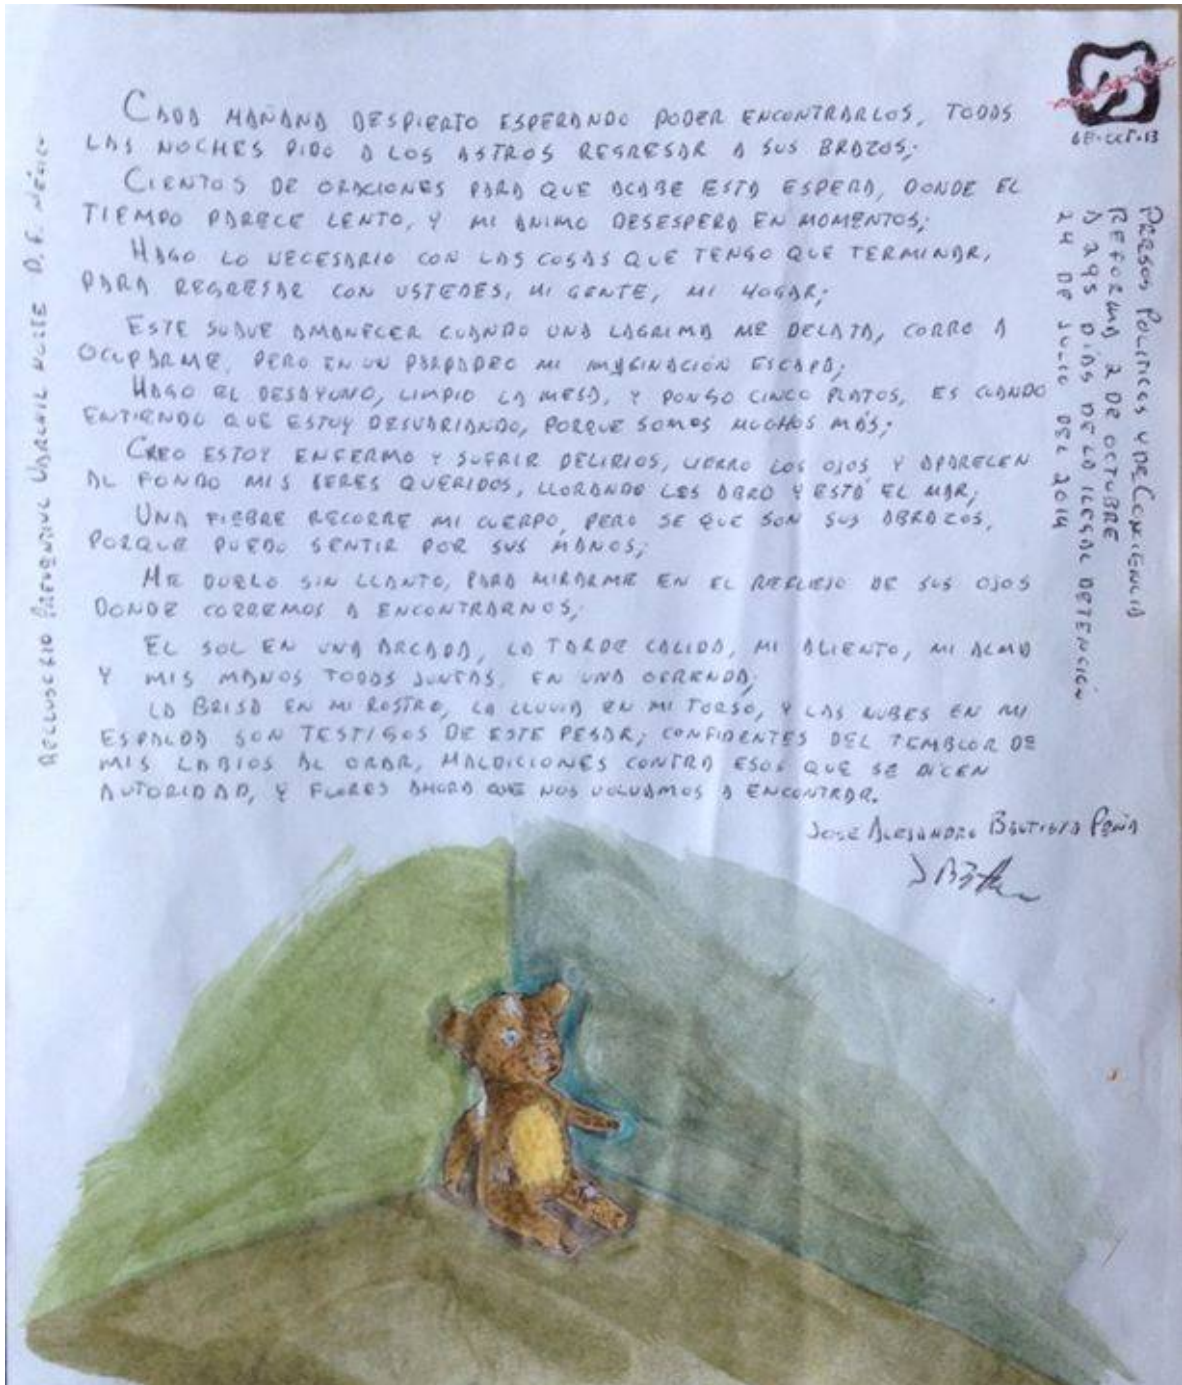 CADA MAÑANA DESPIERTO ESPERANDO PODER ENCONTRARLOS, TODAS
LAS NOCHES PIDO A LOS ASTROS REGRESAR A SUS BRAZOS;
CIENTOS DE ORACIONES PARA QUE ACABE ESTA ESPERA, DONDE EL
TIEMPO PARECE LENTO, Y MI ANIMO DESESPERA EN MOMENTOS;
HAGO LO NECESARIO CON LAS COSAS QUE TENGO QUE TERMINAR,
PARA REGRESAR CON USTEDES, MI GENTE, MI HOGAR;
ESTE SUAVE AMANECER CUANDO UNA LAGRIMA ME DELATA, CORRO A
OCUPARME, PERO EN UN PARPADEO MI IMAGINACIÓN ESCAPA;
HAGO EL DESAYUNO, LIMPIO LA MESA, Y PONGO CINCO PLATOS, ES CUANDO
ENTIENDO QUE ESTOY DESVARIANDO, PORQUE SOMOS MUCHOS MÁS;
CREO ESTOY ENFERMO Y SUFRIR DELIRIOS, CIERRO LOS OJOS Y APARECEN
AL FONDO MIS SERES QUERIDOS, LLORANDO LOS ABRO Y ESTÁ EL MAR;
UNA FIEBRE RECORRE MI CUERPO, PERO SE QUE SON SUS ABRAZOS,
PORQUE PUEDO SENTIR POR SUS MANOS;
ME DUELO SIN LLANTO, PARA MIRARME EN EL REFLEJO DE SUS OJOS
DONDE CORREMOS A ENCONTRARNOS;
EL SOL EN UNA ARCADA, LA TARDE CALIDA, MI ALIENTO, MI ALMA
Y MIS MANOS TODAS JUNTAS, EN UNA OFRENDA;
LA BRISA EN MI ROSTRO, LA LLUVIA EN MI TORSO, Y LAS NUBES EN MI
ESPALDA SON TESTIGOS DE ESTE PESAR; CONFIDENTES DEL TEMBLOR DE
MIS LABIOS AL ORAR, MALDICIONES CONTRA ESOS QUE SE DICEN
AUTORIDAD, Y FLORES AHORA QUE NOS VOLVAMOS A ENCONTRAR.
JOSE ALEJANDRO BAUTISTA PEÑA
RECLUSORIO PREVENTIVO VARONIL NORTE D.F. México
PRESOS POLITICOS Y DE CONCIENCIA
REFORMA 2 DE OCTUBRE
A 295 DIAS DE LA ILEGAL DETENCIÓN
24 DE JULIO DEL 2014